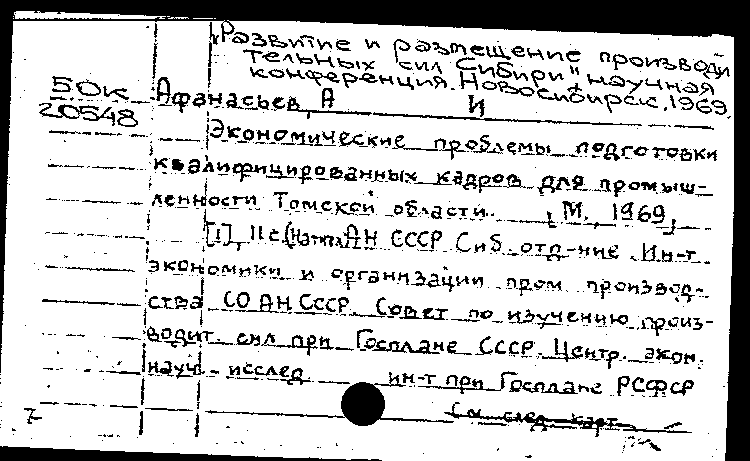 "Развитие и размещение производи
тельных сил Сибири", научная
конференция. Новосибирск, 1969.
50к
20548
Афанасьев, А И
Экономические проблемы подготовки
квалифицированных кадров для промыш-
ленности Томской области. М., 1969,
[1], 11 с. (На тит. АН СССР Сиб. отд-ние. Ин-т
экономики и организации пром производ-
ства СО АН СССР. Совет по изучению произ-
водит. сил при Госплане СССР. Центр. экон.
науч. - исслед ин-т при Госплане РСФСР
См. след. карт.
7